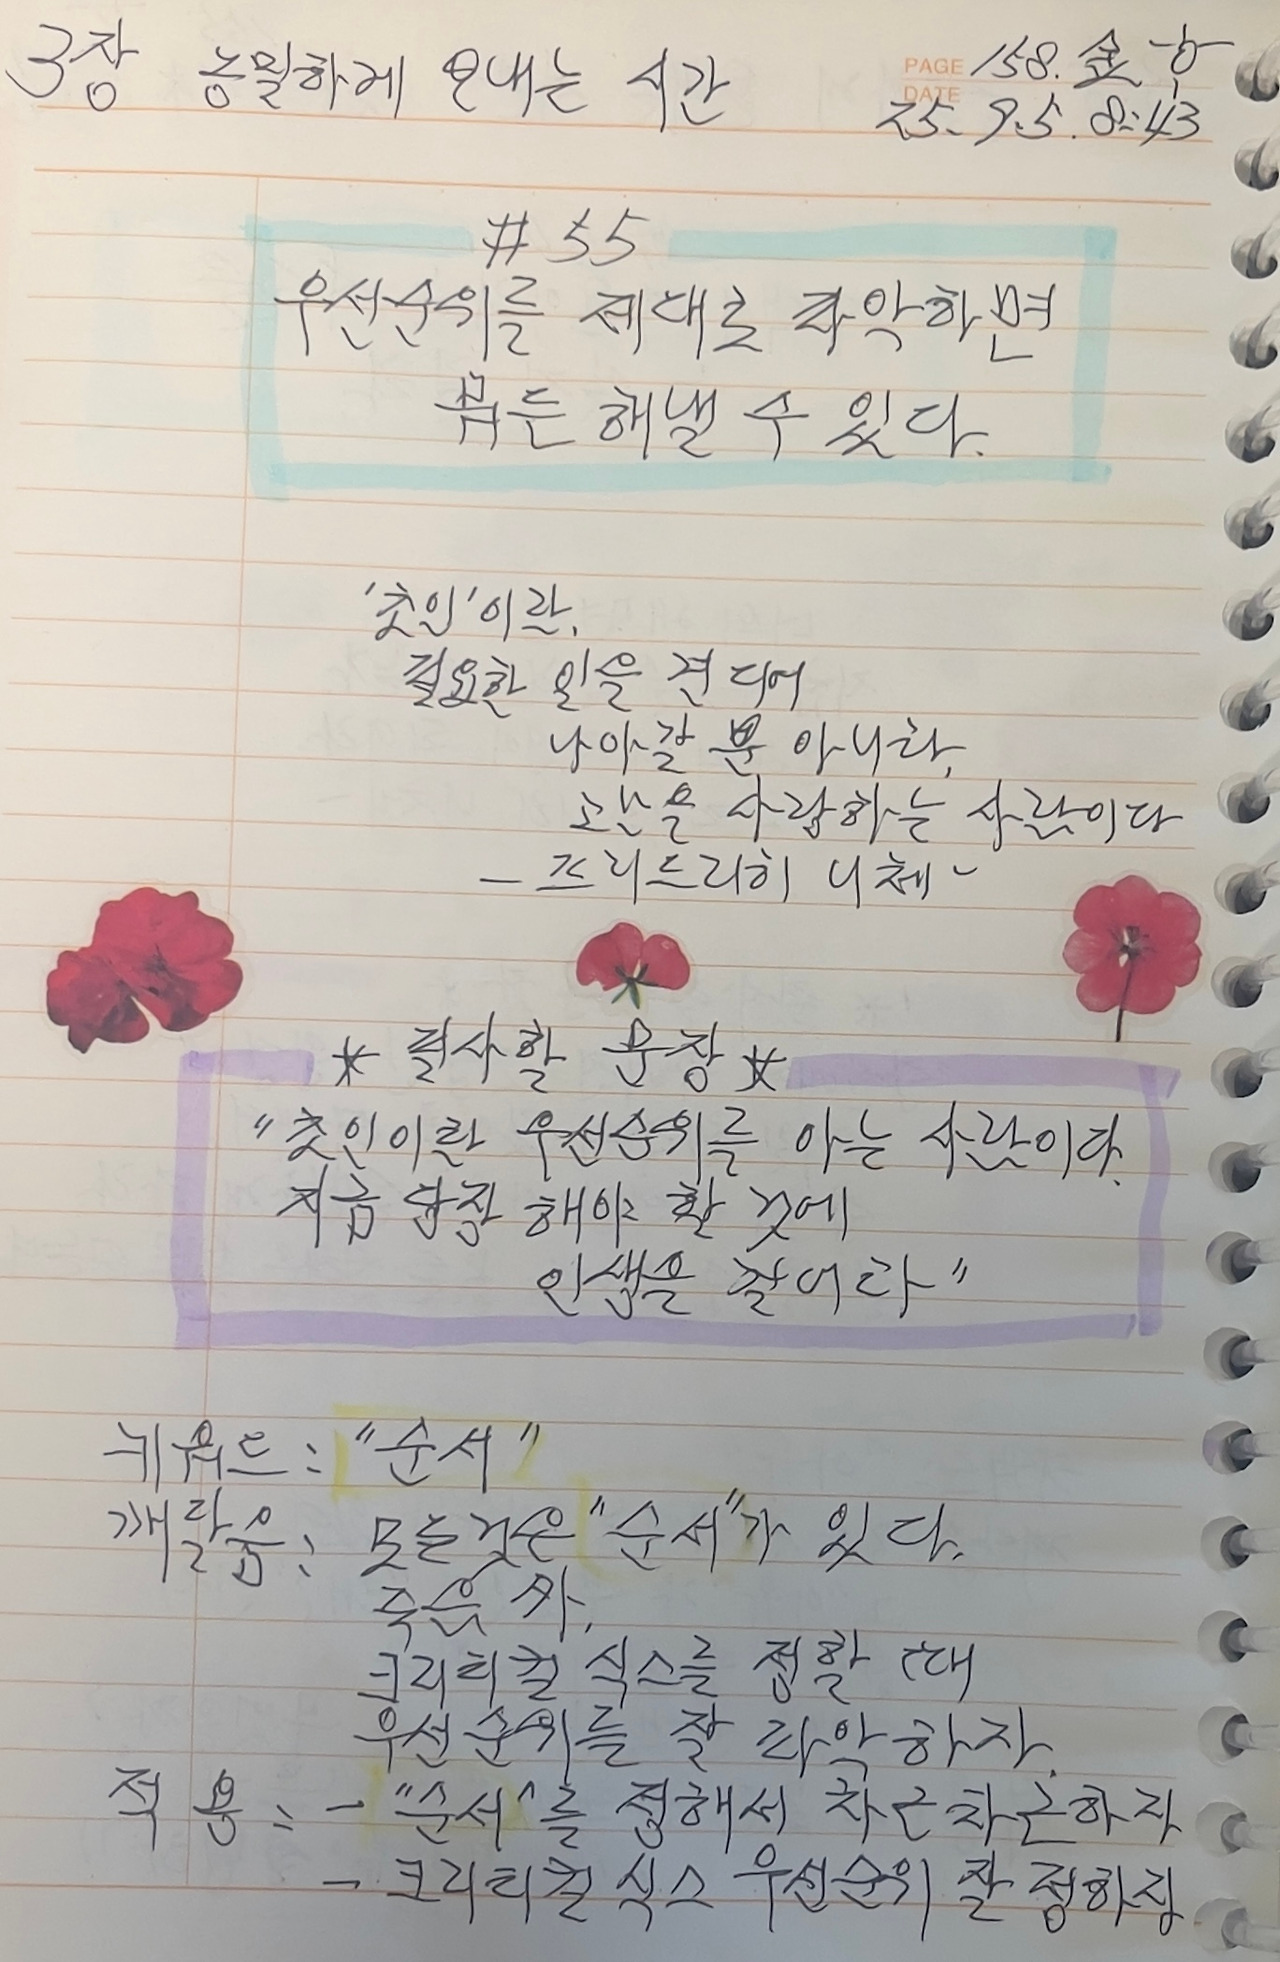 3장 농밀하게 보내는 시간
PAGE 158. 金
DATE 25. 9. 5. 8:43
# 55
우선순위를 제대로 파악하면
뭐든 해낼 수 있다.
'초인'이란,
필요한 일을 견디어
나아갈 뿐 아니라,
고난을 사랑하는 사람이다
- 프리드리히 니체 -
* 필사할 문장 *
"초인이란 우선순위를 아는 사람이다.
지금 당장 해야 할 것에
인생을 걸어라"
키워드 : "순서"
깨달음 : 모든것은 "순서"가 있다.
죽음 까.
크리티컬 식스를 정할 때
우선순위를 잘 파악하자.
적 용 : - "순서"를 정해서 차근차근하자
- 크리티컬 식스 우선순위 잘 정하장